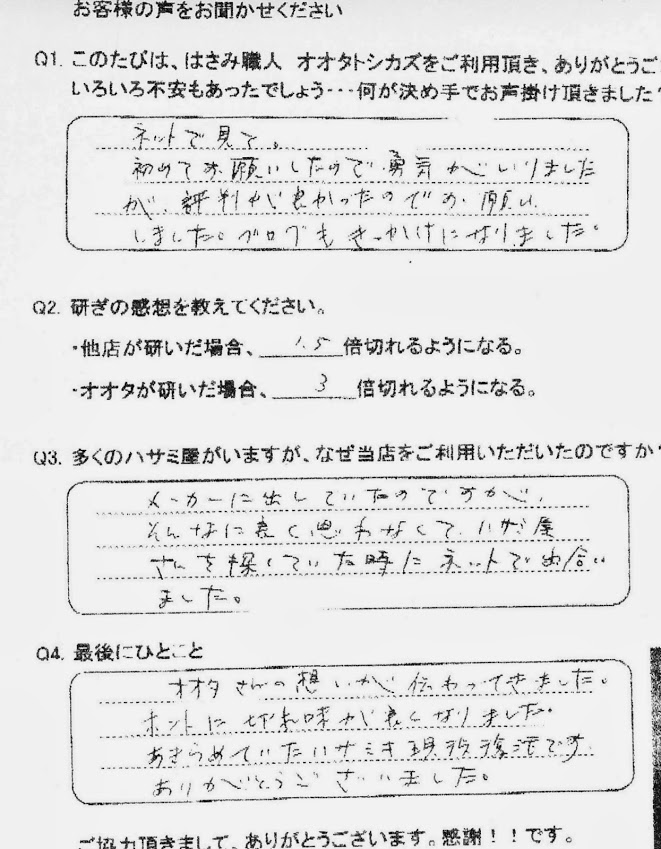 お客様の声をお聞かせください
Q1. このたびは、はさみ職人 オオタトシカズをご利用頂き、ありがとうご
いろいろ不安もあったでしょう…何が決め手でお声掛け頂きました
ネットで見て。
初めてお願いしたので勇気がいりました
が、評判が良かったのでお願い
しました。ブログもきっかけになりました。
Q2. 研ぎの感想を教えてください。
・他店が研いだ場合、1.5倍切れるようになる。
・オオタが研いだ場合、3倍切れるようになる。
Q3. 多くのハサミ屋がいますが、なぜ当店をご利用いただいたのですか
メーカーに出していたのですが、
そんなに良く思わなくて、ハサミ屋
さんを探していた時にネットで出合い
ました。
Q4. 最後にひとこと
オオタさんの想いが伝わってきました。
ホントに切れ味が良くなりました。
あきらめていたハサミも現役復活です。
ありがとうございました。
ご協力頂きまして、ありがとうございます。感謝！！です。